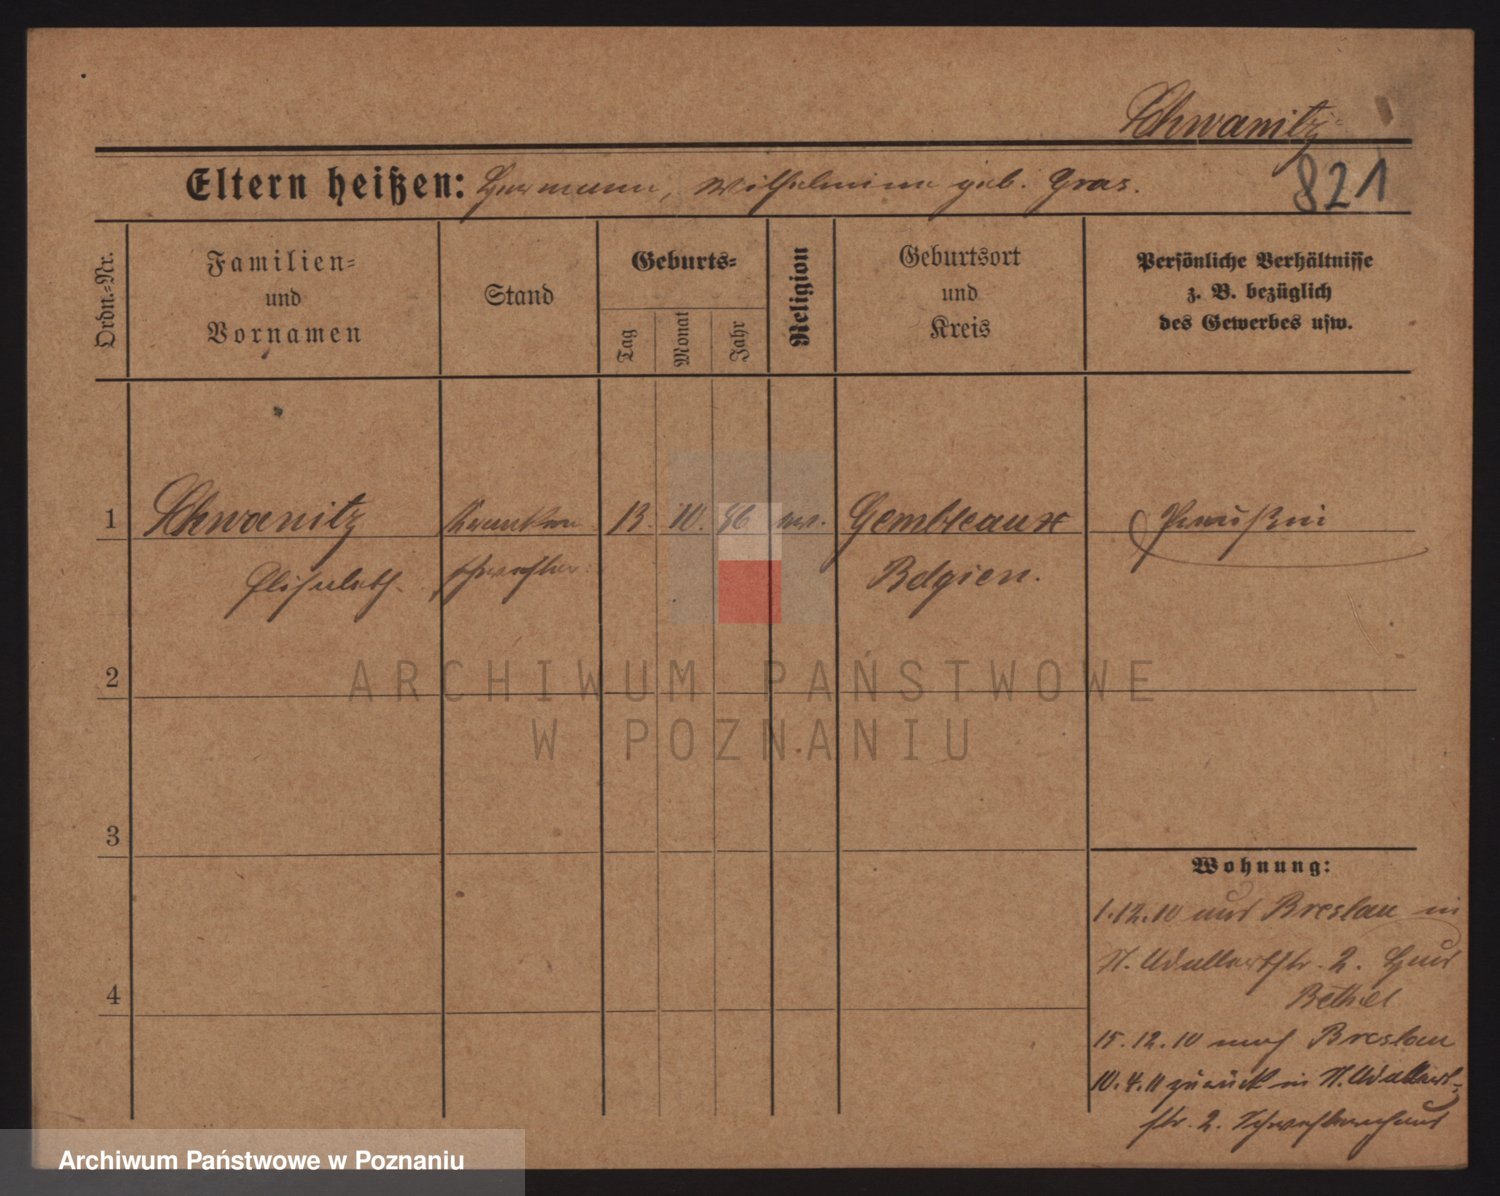 Schwanitz
Eltern heißen: Hermann, Wilhelmine geb. Gras.
821
Ordn.-Nr.
Familien-
und
Vornamen
Stand
Geburts-
Tag
Monat
Jahr
Religion
Geburtsort
und
Kreis
Persönliche Verhältnisse
z. B. bezüglich
des Gewerbes usw.
1 Schwanitz Kranken 13. 10. 86 Gembleaux Preußin
Elisabeth. schwester. Belgien.
2
3
4
ARCHIWUM PAŃSTWOWE
W POZNANIU
Wohnung:
1.12.10 aus Breslau in
2. Haus
Bethel
15.12.10 nach Breslau
10.4.11 zurück in
str. 2. Schwesternhaus
Archiwum Państwowe w Poznaniu